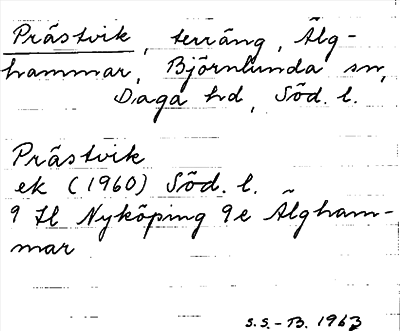 Prästvik, terräng, Älg-
hammar, Björnlunda sn,
Daga hd, Söd. l.
Prästvik
ek (1960) Söd. l.
9 H Nyköping 9e Älgham-
mar
S.S.-B. 1963